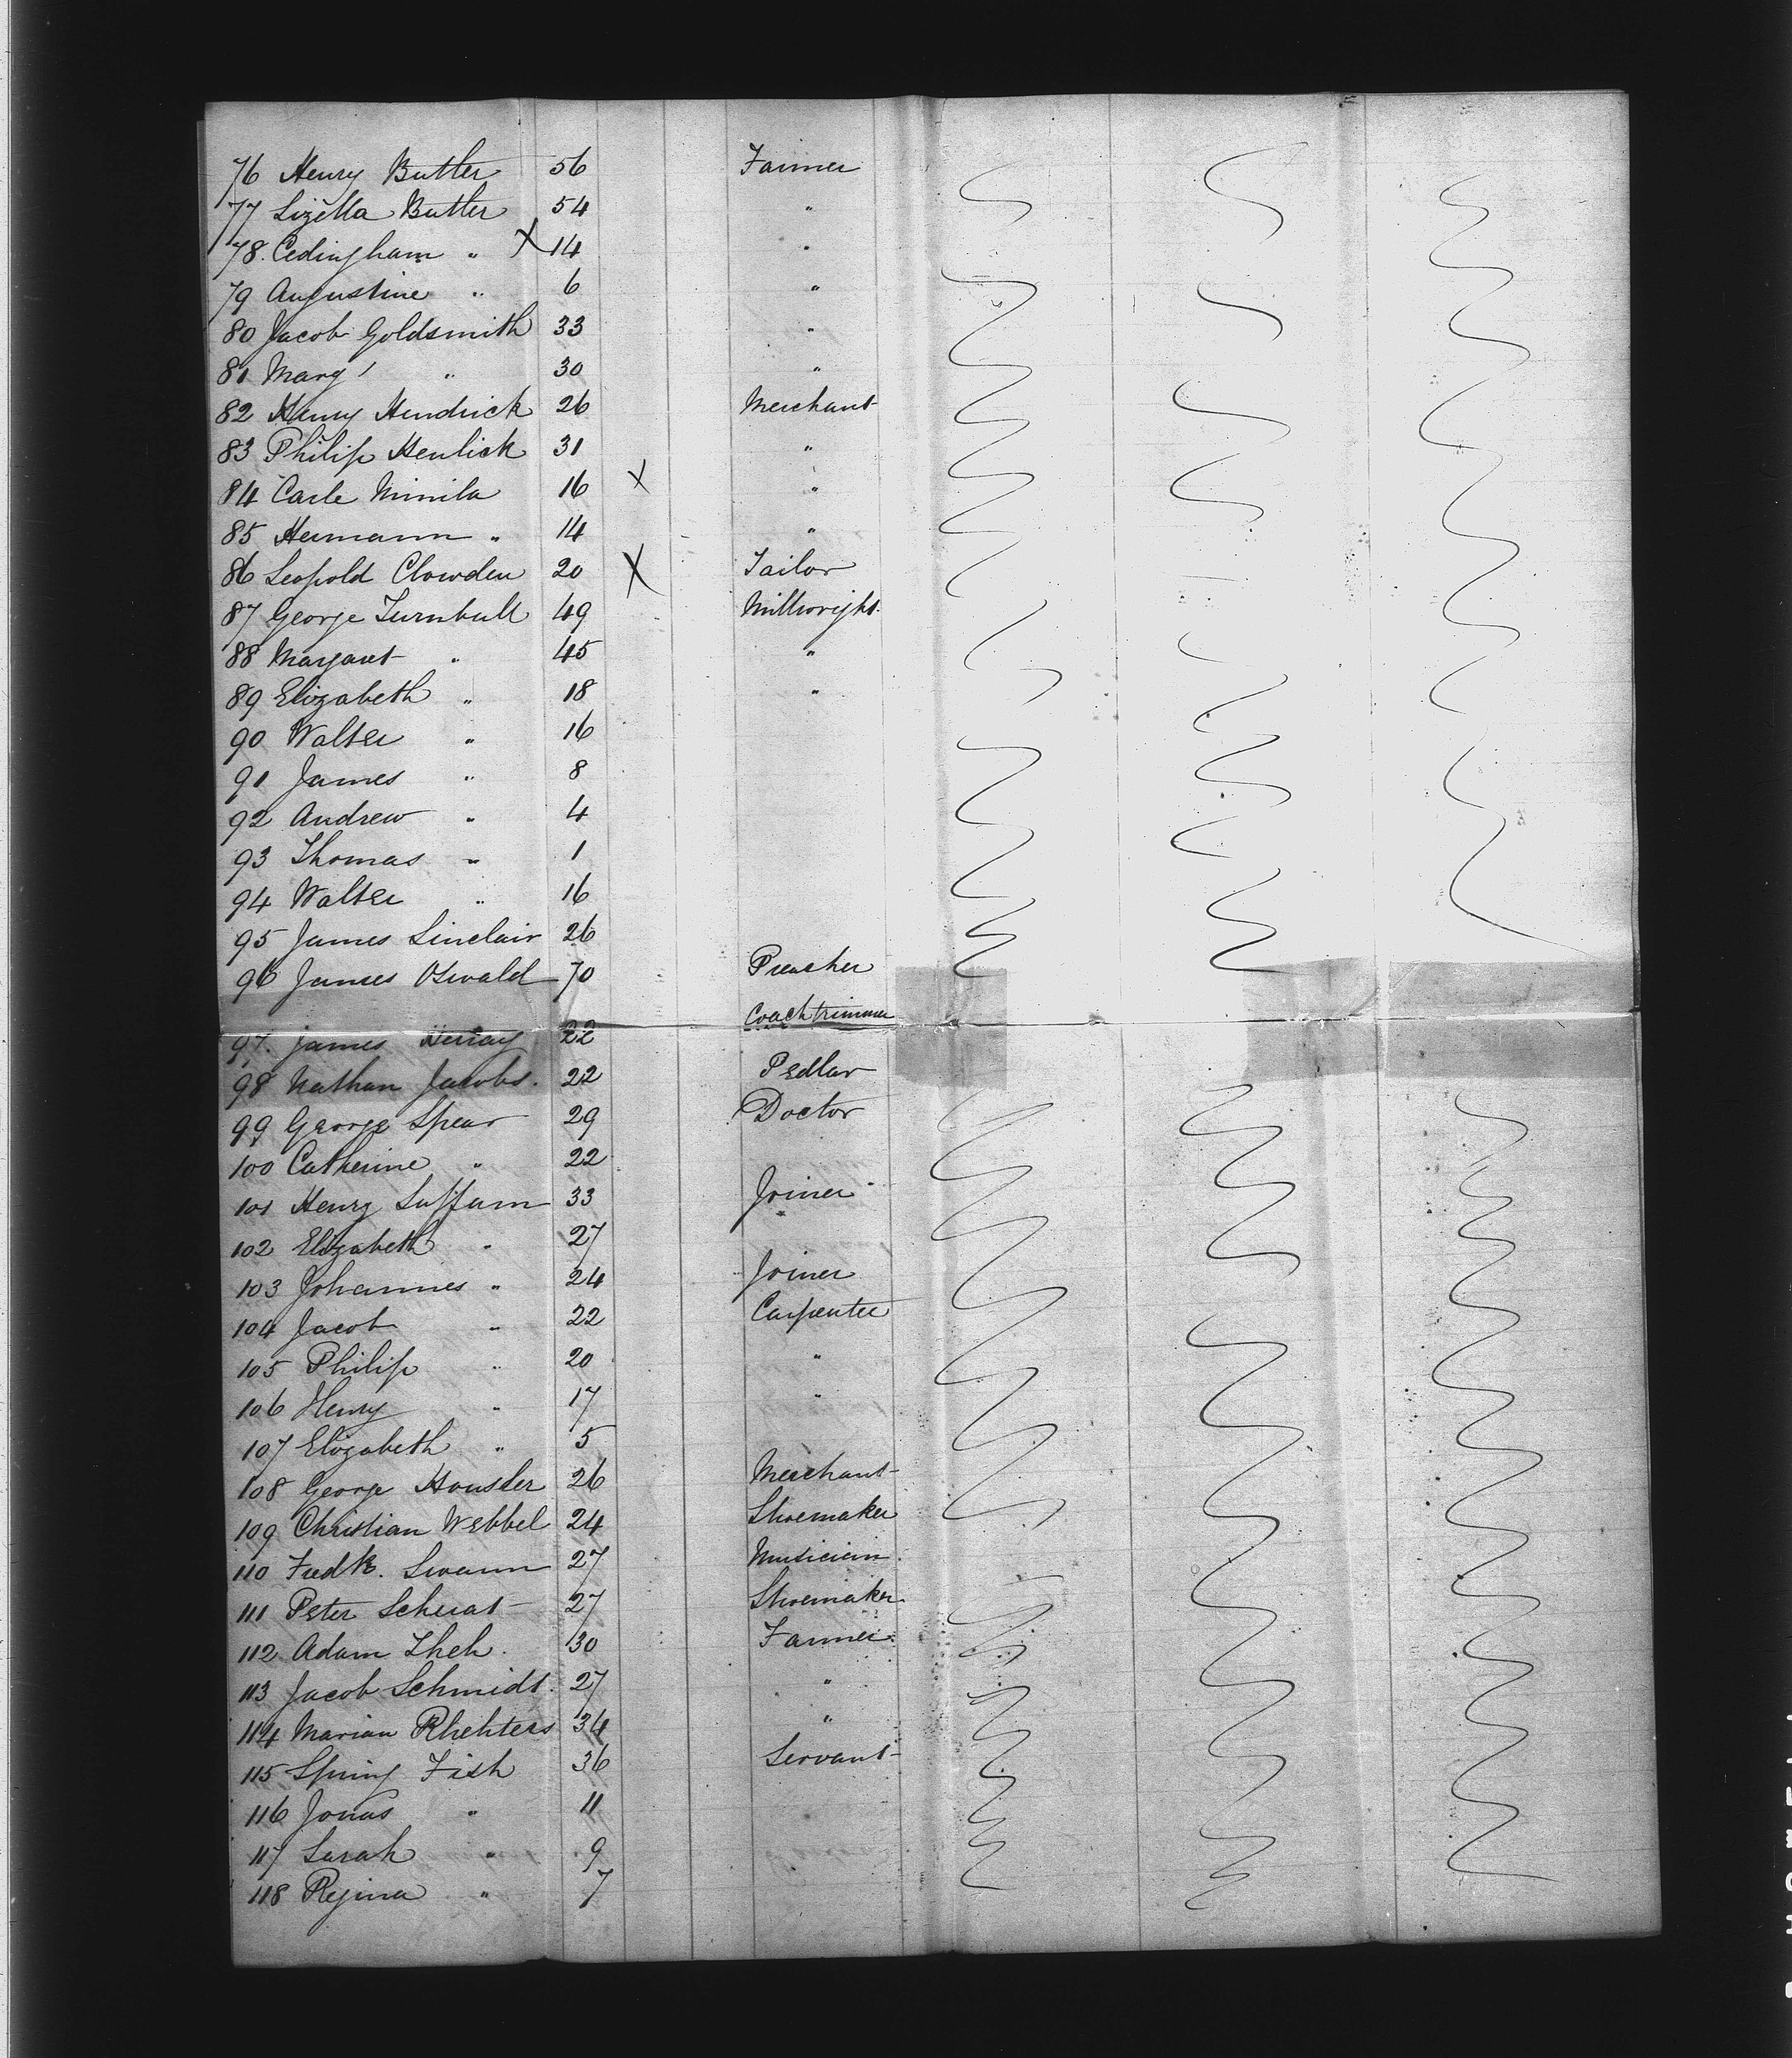 76 Henry Butler 56 Farmer
77 Lizetta Butler 54 "
78. Cedingham " X 14 "
79 Augustine " 6 "
80 Jacob Goldsmith 33 "
81 Mary " 30 "
82 Henry Hendrick 26 Merchant
83 Philip Henlick 31 "
84 Carle Minila 16 X "
85 Hermann " 14 "
86 Leopold Clowden 20 X Tailor
87 George Turnbull 49 Millwright
88 Margaret " 45 "
89 Elizabeth " 18 "
90 Walter " 16
91 James " 8
92 Andrew " 4
93 Thomas " 1
94 Walter " 16
95 James Sinclair 26
96 James Oswald 70 Preacher
97. James 22 Coachtrimmer
98 Nathan Jacobs. 22 Pedlar
99 George Spear 29 Doctor
100 Catherine " 22
101 Henry 33 Joiner
102 Elizabeth " 27
103 Johannes " 24 Joiner
104 Jacob " 22 Carpenter
105 Philip " 20 "
106 Henry " 17 "
107 Elizabeth " 5
108 George Housler 26 Merchant
109 Christian Webbel 24 Shoemaker
110 Fredk. Swann 27 Musician
111 Peter Scherat 27 Shoemaker
112 Adam 30 Farmer
113 Jacob Schmidt. 27 "
114 Marian Rhehters 34 "
115 Spring Fish 36 Servant
116 Jonas " 11
117 Sarah " 9
118 Regina " 7